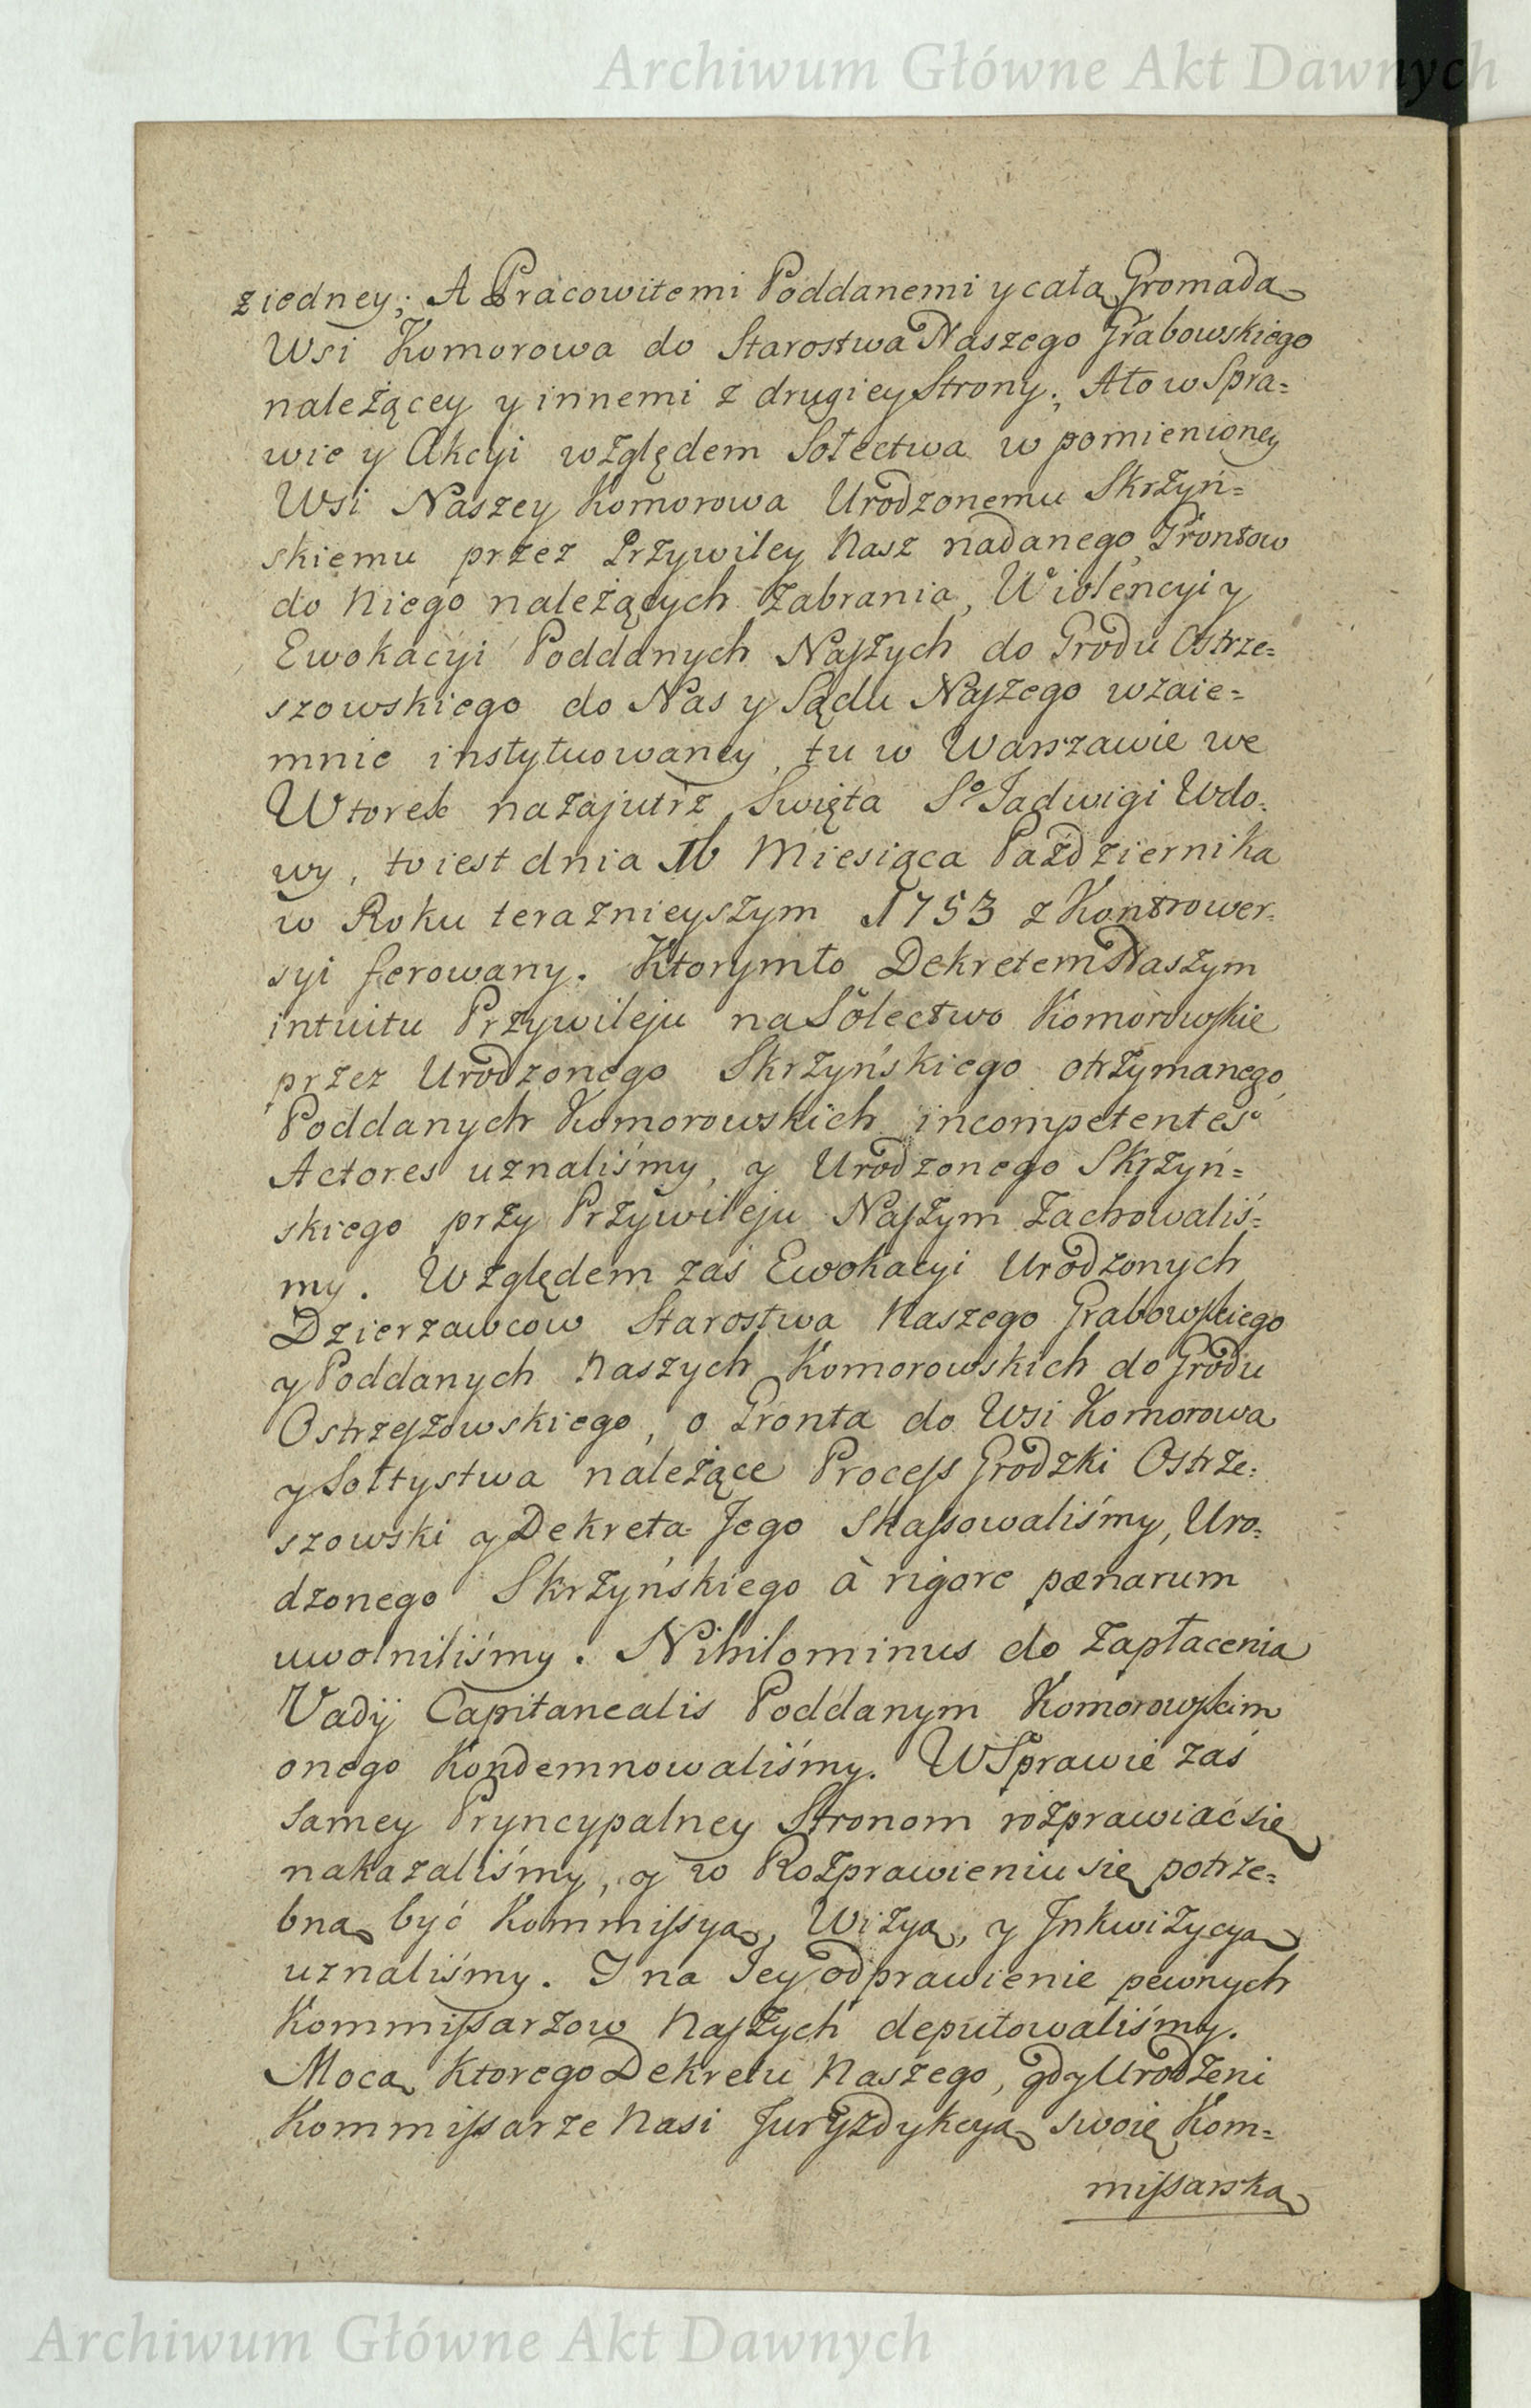 Archiwum Główne Akt Dawnych
z iedney; A Pracowitemi Poddanemi y całą Gromadą
Wsi Komorowa do Starostwa Naszego Grabowskiego
należącey y innemi z drugiey Strony; A to w Spra=
wie y Akcyi względem Sołectwa w pomienioney
Wsi Naszey Komorowa Urodzonemu Skrzyń=
skiemu przez Przywiley Nasz nadanego, Grontow
do Niego należących zabrania, Wiolencyi y
Ewokacyi Poddanych Naszych do Grodu Ostrze=
szowskiego do Nas y Sądu Naszego wzaie=
mnie instytuowaney, tu w Warszawie we
Wtorek nazajutrz Swięta S° Jadwigi Wdo=
wy, to iest dnia 16 Miesiąca Października
w Roku teraznieyszym 1753 z Kontrower=
syi ferowany. Ktorymto Dekretem Naszym
intuitu Przywileju na Sołectwo Komorowskie
przez Urodzonego Skrzyńskiego otrzymanego,
Poddanych Komorowskich incompetentes
Actores uznaliśmy, y Urodzonego Skrzyń=
skiego przy Przywileju Naszym zachowaliś=
my. Względem zaś Ewokacyi Urodzonych
Dzierzawcow Starostwa Naszego Grabowskiego
y Poddanych Naszych Komorowskich do Grodu
Ostrzeszowskiego, o Gronta do Wsi Komorowa
y Sołtystwa należące Process Grodzki Ostrze=
szowski y Dekreta Jego skassowaliśmy, Uro=
dzonego Skrzyńskiego à rigore pœnarum
uwolniliśmy. Nihilominus do zapłacenia
Vadij Capitanealis Poddanym Komorowskim
onego kondemnowaliśmy. W Sprawie zaś
samey Pryncypalney Stronom rozprawiać się
nakazaliśmy, y w Rozprawieniu się potrze=
bną być Kommissyą, Wizyą, y Inkwizycyą
uznaliśmy. I na Jey odprawienie pewnych
Kommissarzow Naszych deputowaliśmy.
Mocą ktorego Dekretu Naszego, gdy Urodzeni
Kommissarze Nasi Juryzdykcyą swoię Kom=
missarską
Archiwum Główne Akt Dawnych